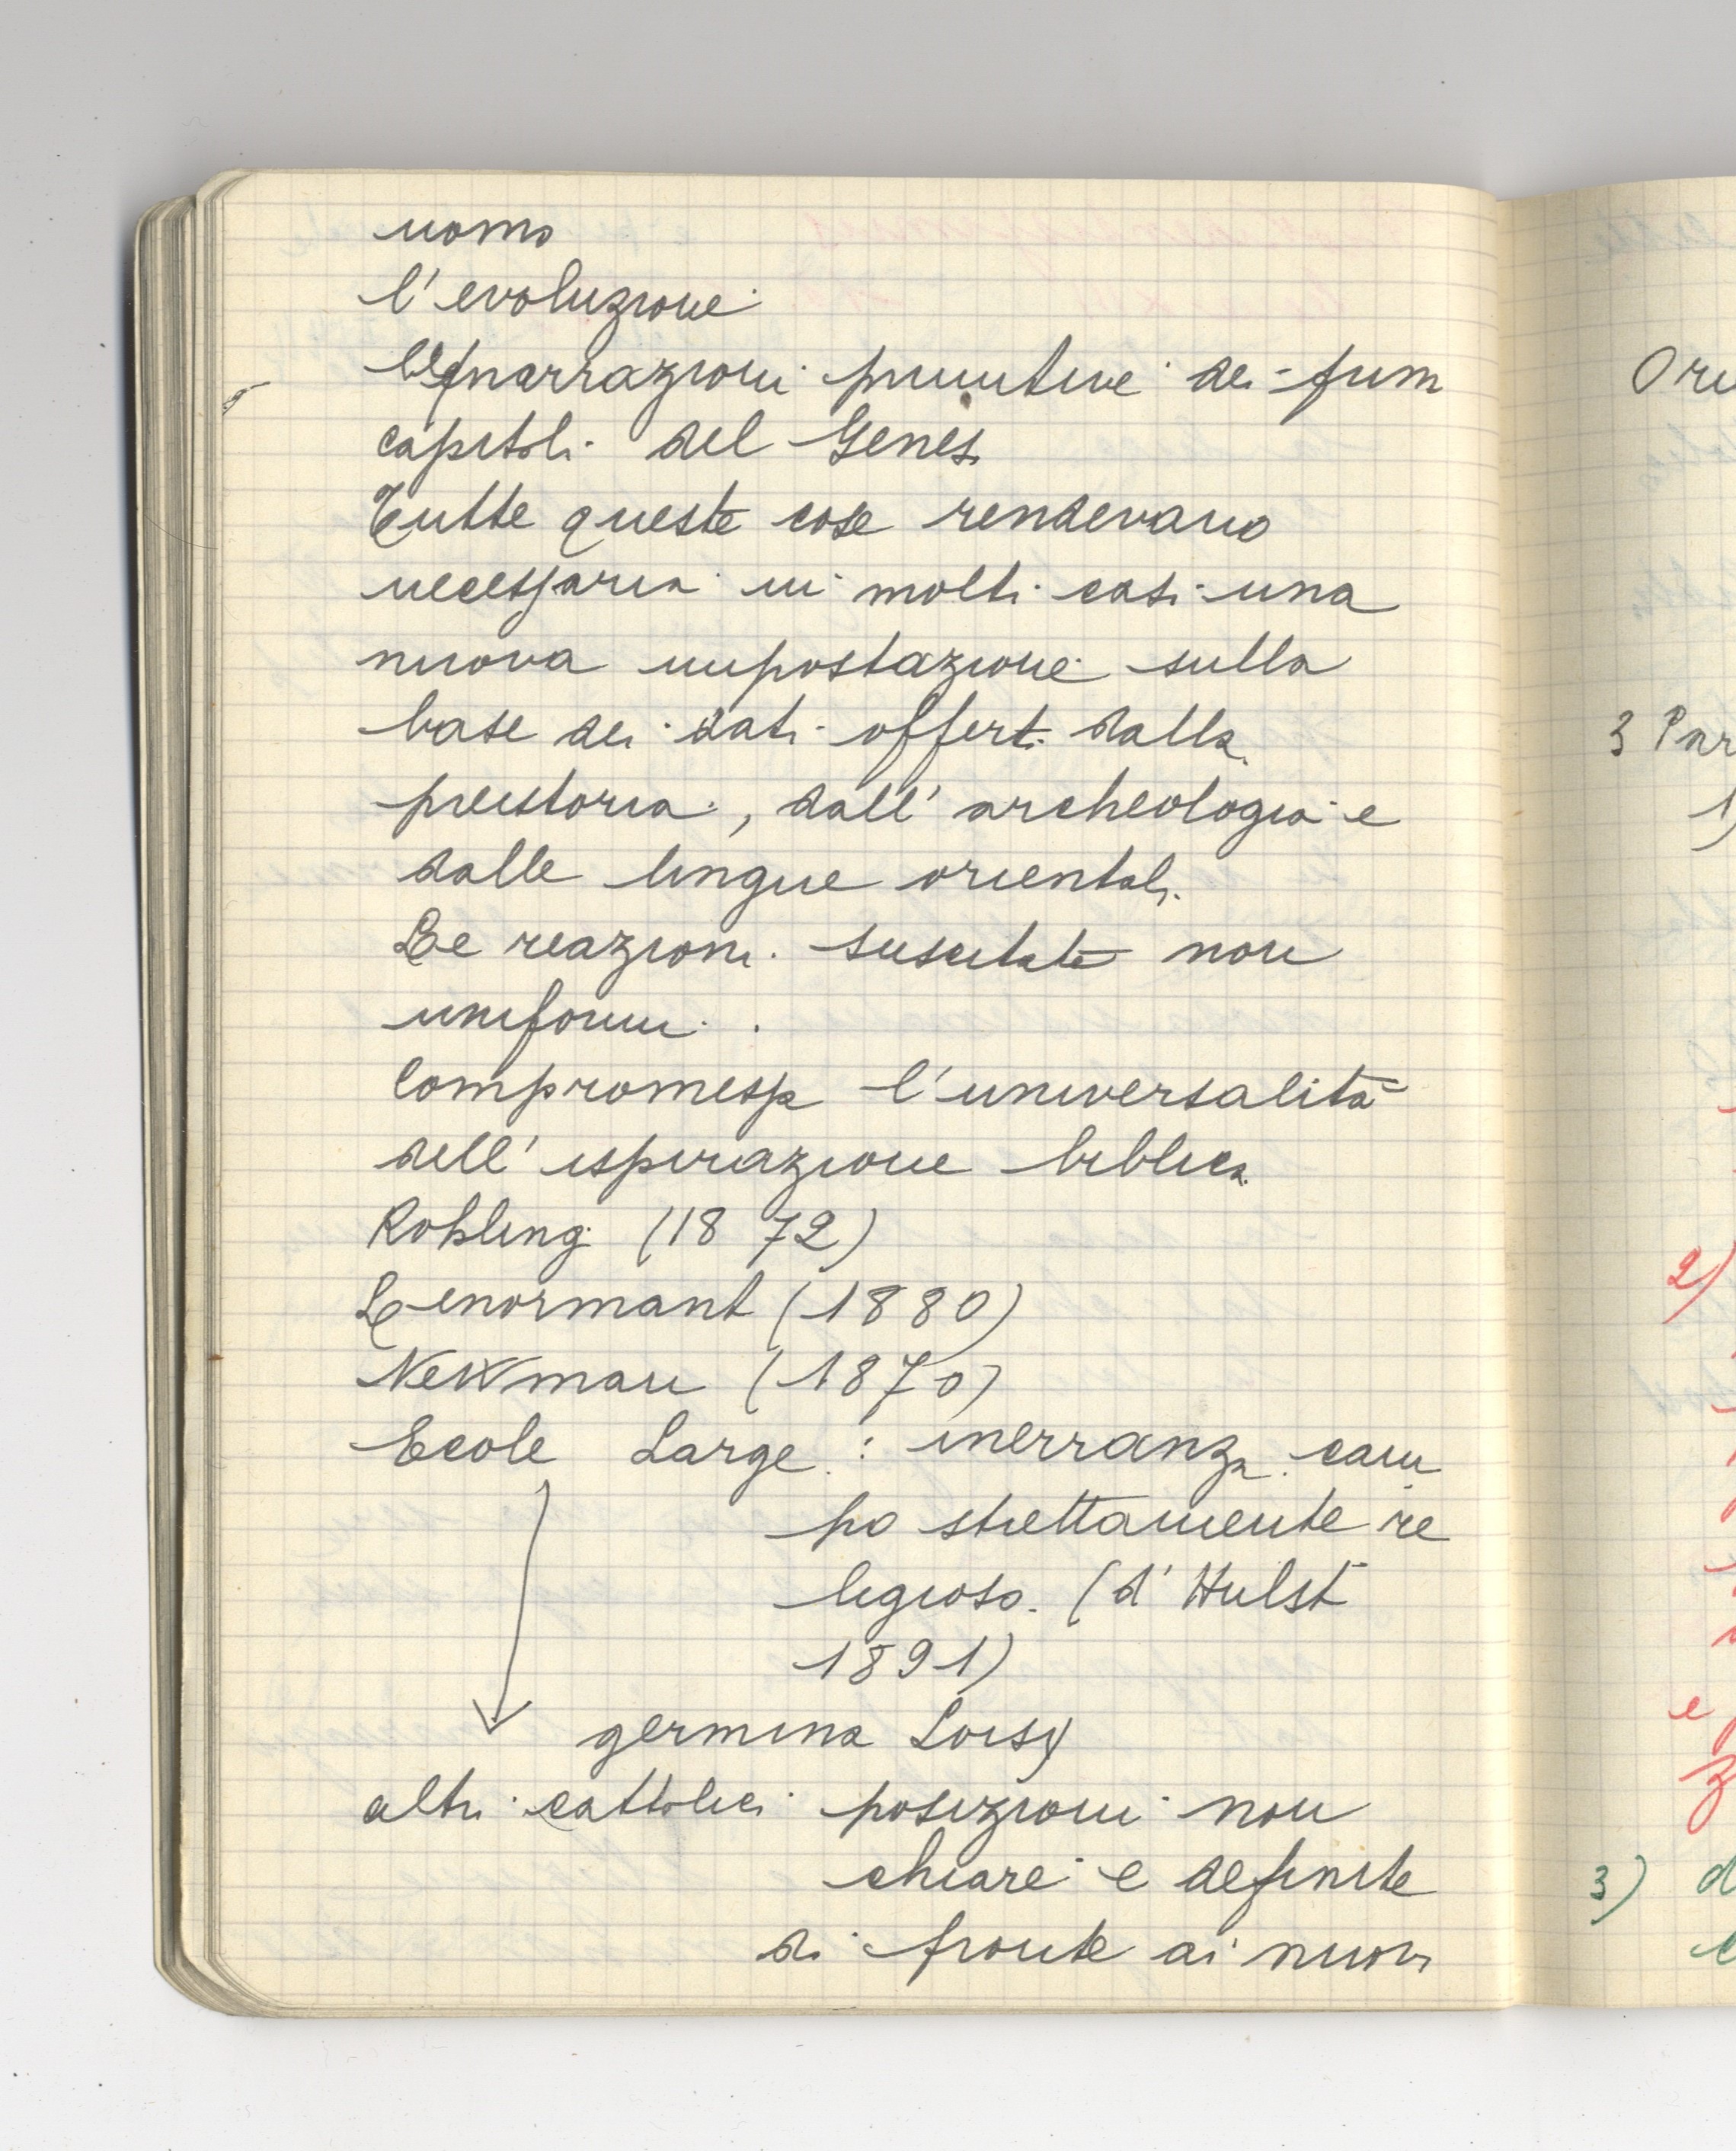 uomo
l'evoluzione
Le narrazioni primitive dei primi
capitoli del Genesi
Tutte queste cose rendevano
necessaria in molti casi una
nuova impostazione sulla
base dei dati offerti dalla
preistoria, dall'archeologia e
dalle lingue orientali.
Le reazioni suscitate non
uniformi.
Compromessa l'universalità
dell'ispirazione biblica.
Rohling (1872)
Lenormant (1880)
Newman (1870)
Ecole Large: inerranza cam
po strettamente re
ligioso. (d'Hulst
1891)
germina Loisy
altri cattolici posizioni non
chiare e definite
di fronte ai nuovi
Ori
3 Par
1)
2)
e
3) d